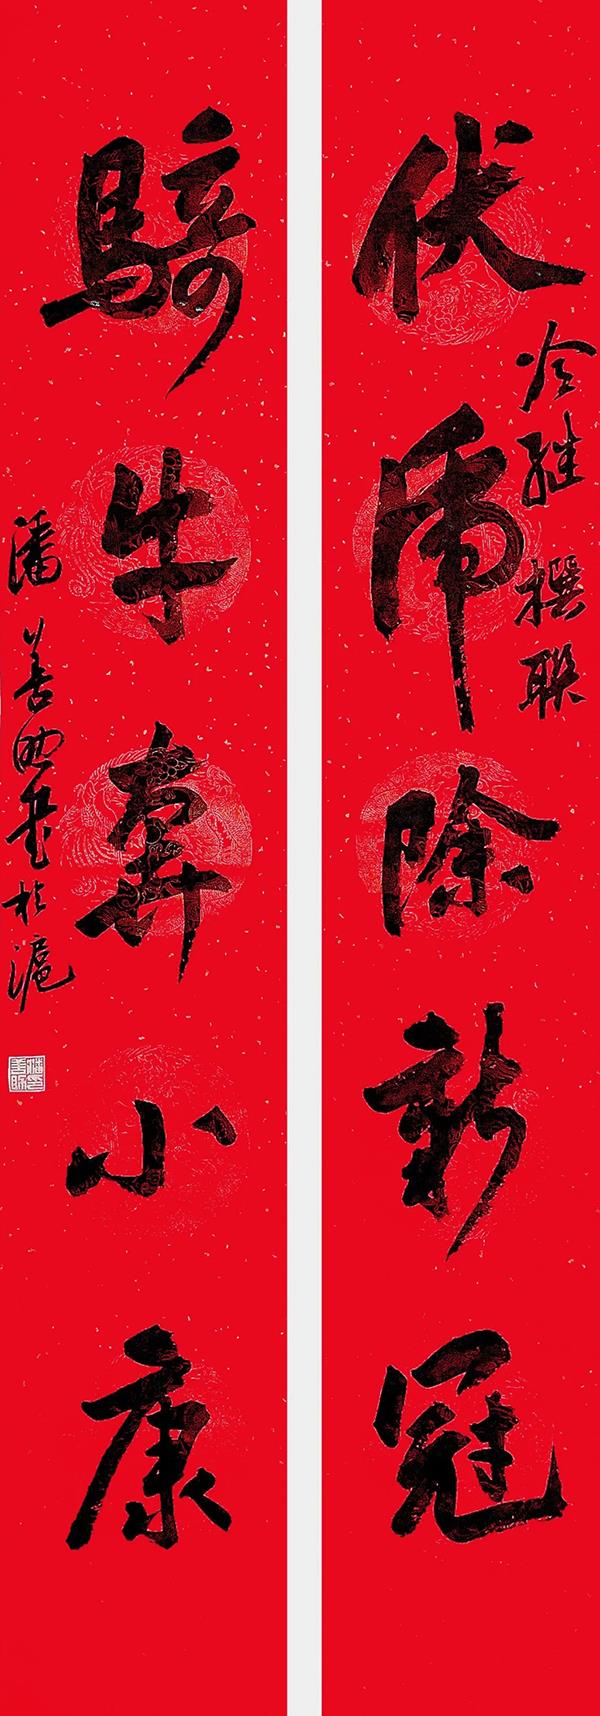 伏虎除新冠
冷 撰联
騎牛奔小康
潘善助書於滬